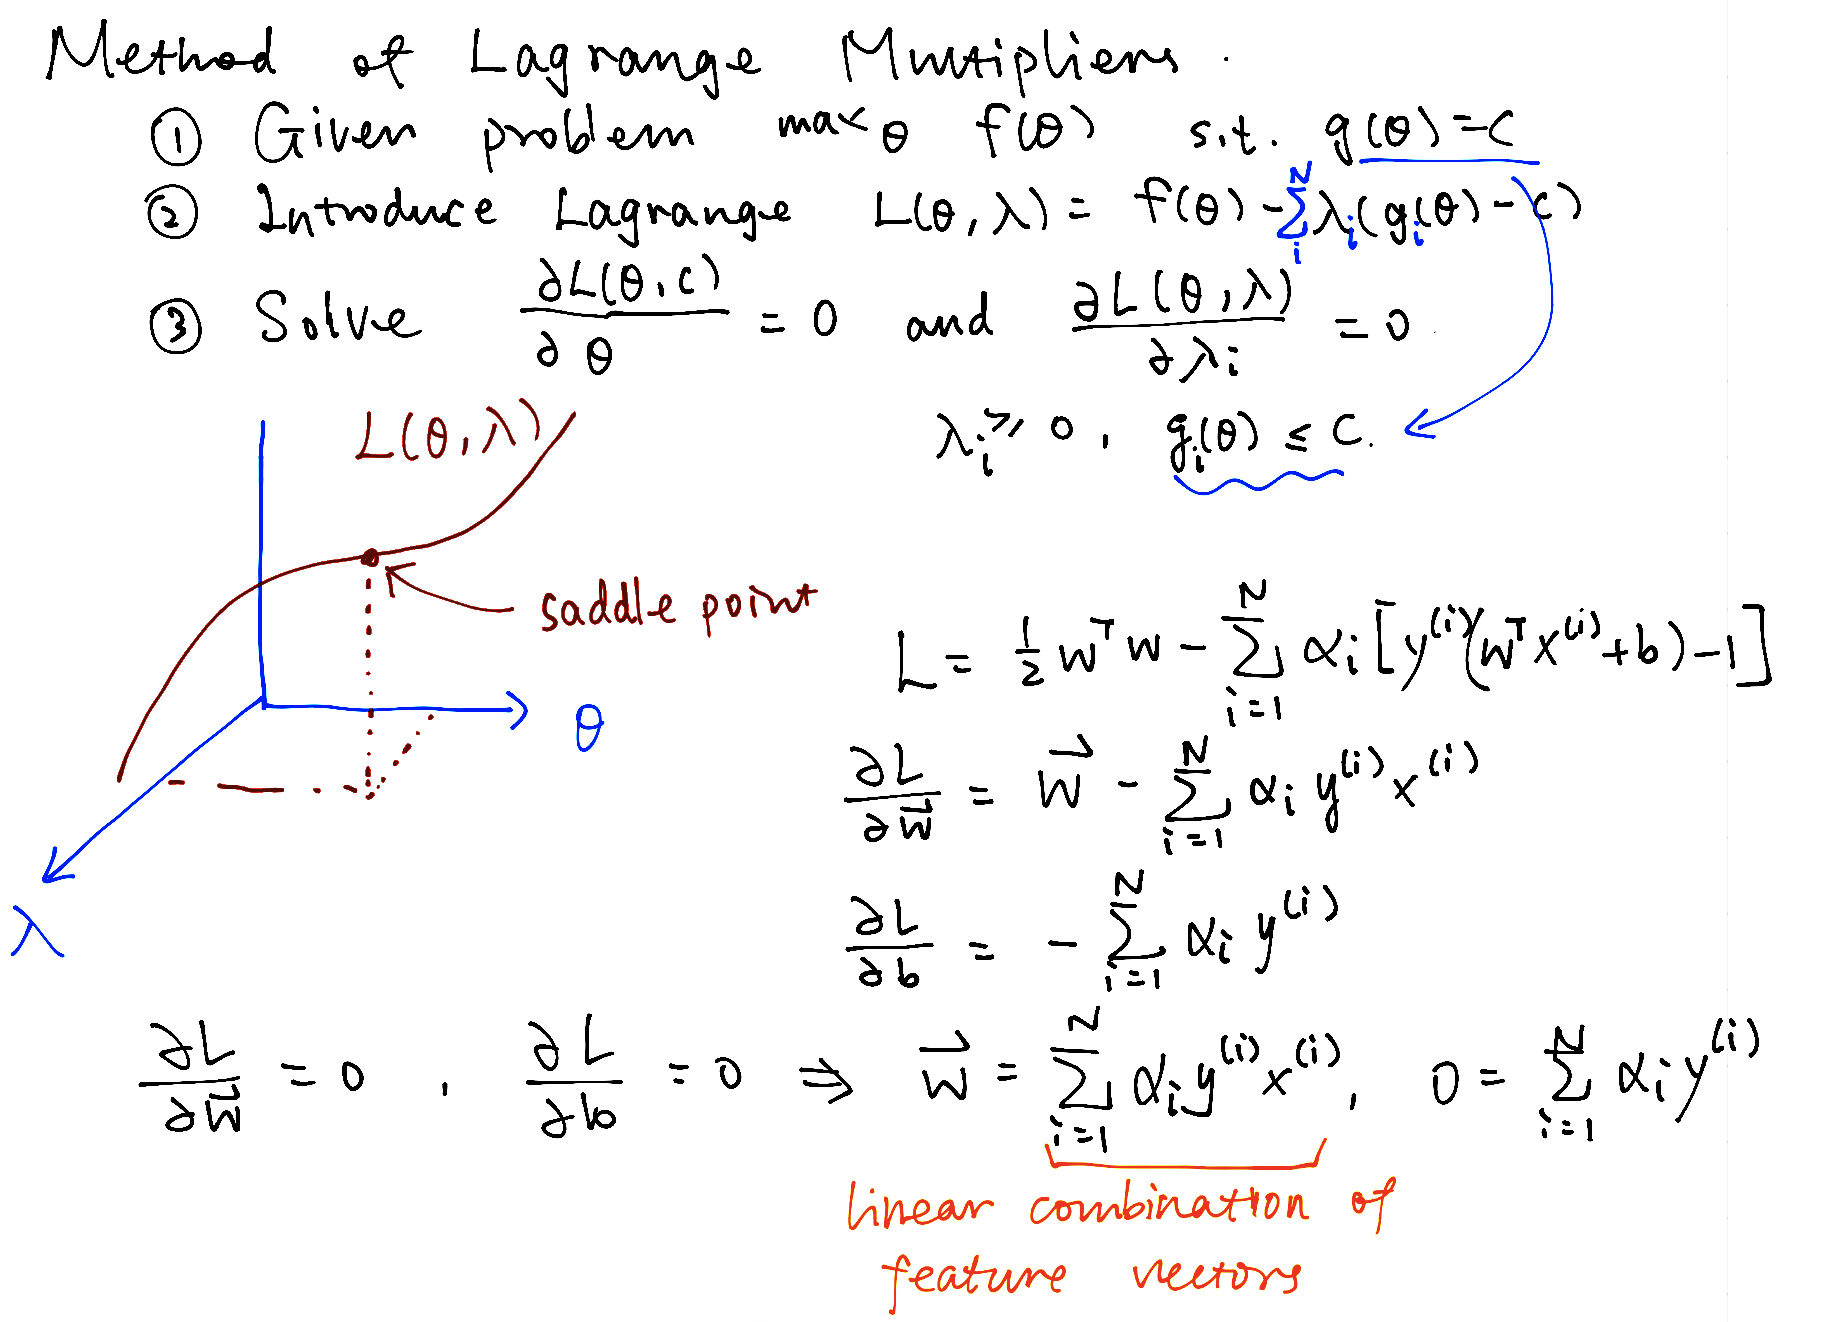 Method of Lagrange Multipliers.
① Given problem max_θ f(θ) s.t. g(θ)=c
② Introduce Lagrange L(θ,λ) = f(θ) - ∑_i^N λ_i(g_i(θ) - c)
③ Solve ∂L(θ,c)/∂θ = 0 and ∂L(θ,λ)/∂λ_i = 0
λ_i ≥ 0, g_i(θ) ≤ c.
L(θ,λ)
saddle point
θ
λ
L = 1/2 w^T w - ∑_{i=1}^N α_i [y^(i)(w^T x^(i)+b)-1]
∂L/∂w⃗ = w⃗ - ∑_{i=1}^N α_i y^(i) x^(i)
∂L/∂b = - ∑_{i=1}^N α_i y^(i)
∂L/∂w⃗ = 0, ∂L/∂b = 0 ⇒ w⃗ = ∑_{i=1}^N α_i y^(i) x^(i), 0 = ∑_{i=1}^N α_i y^(i)
linear combination of
feature vectors